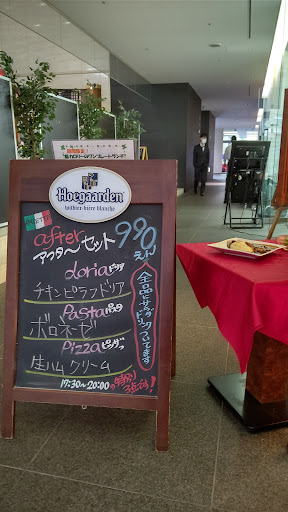 Hoegaarden
witbier-bière blanche
after
アフターセット 990
doria ドリア
チキンピラフドリア
Pasta パスタ
ボロネーゼ
Pizza ピッツァ
生ハムクリーム
17:30~20:00
全品に
ついてます